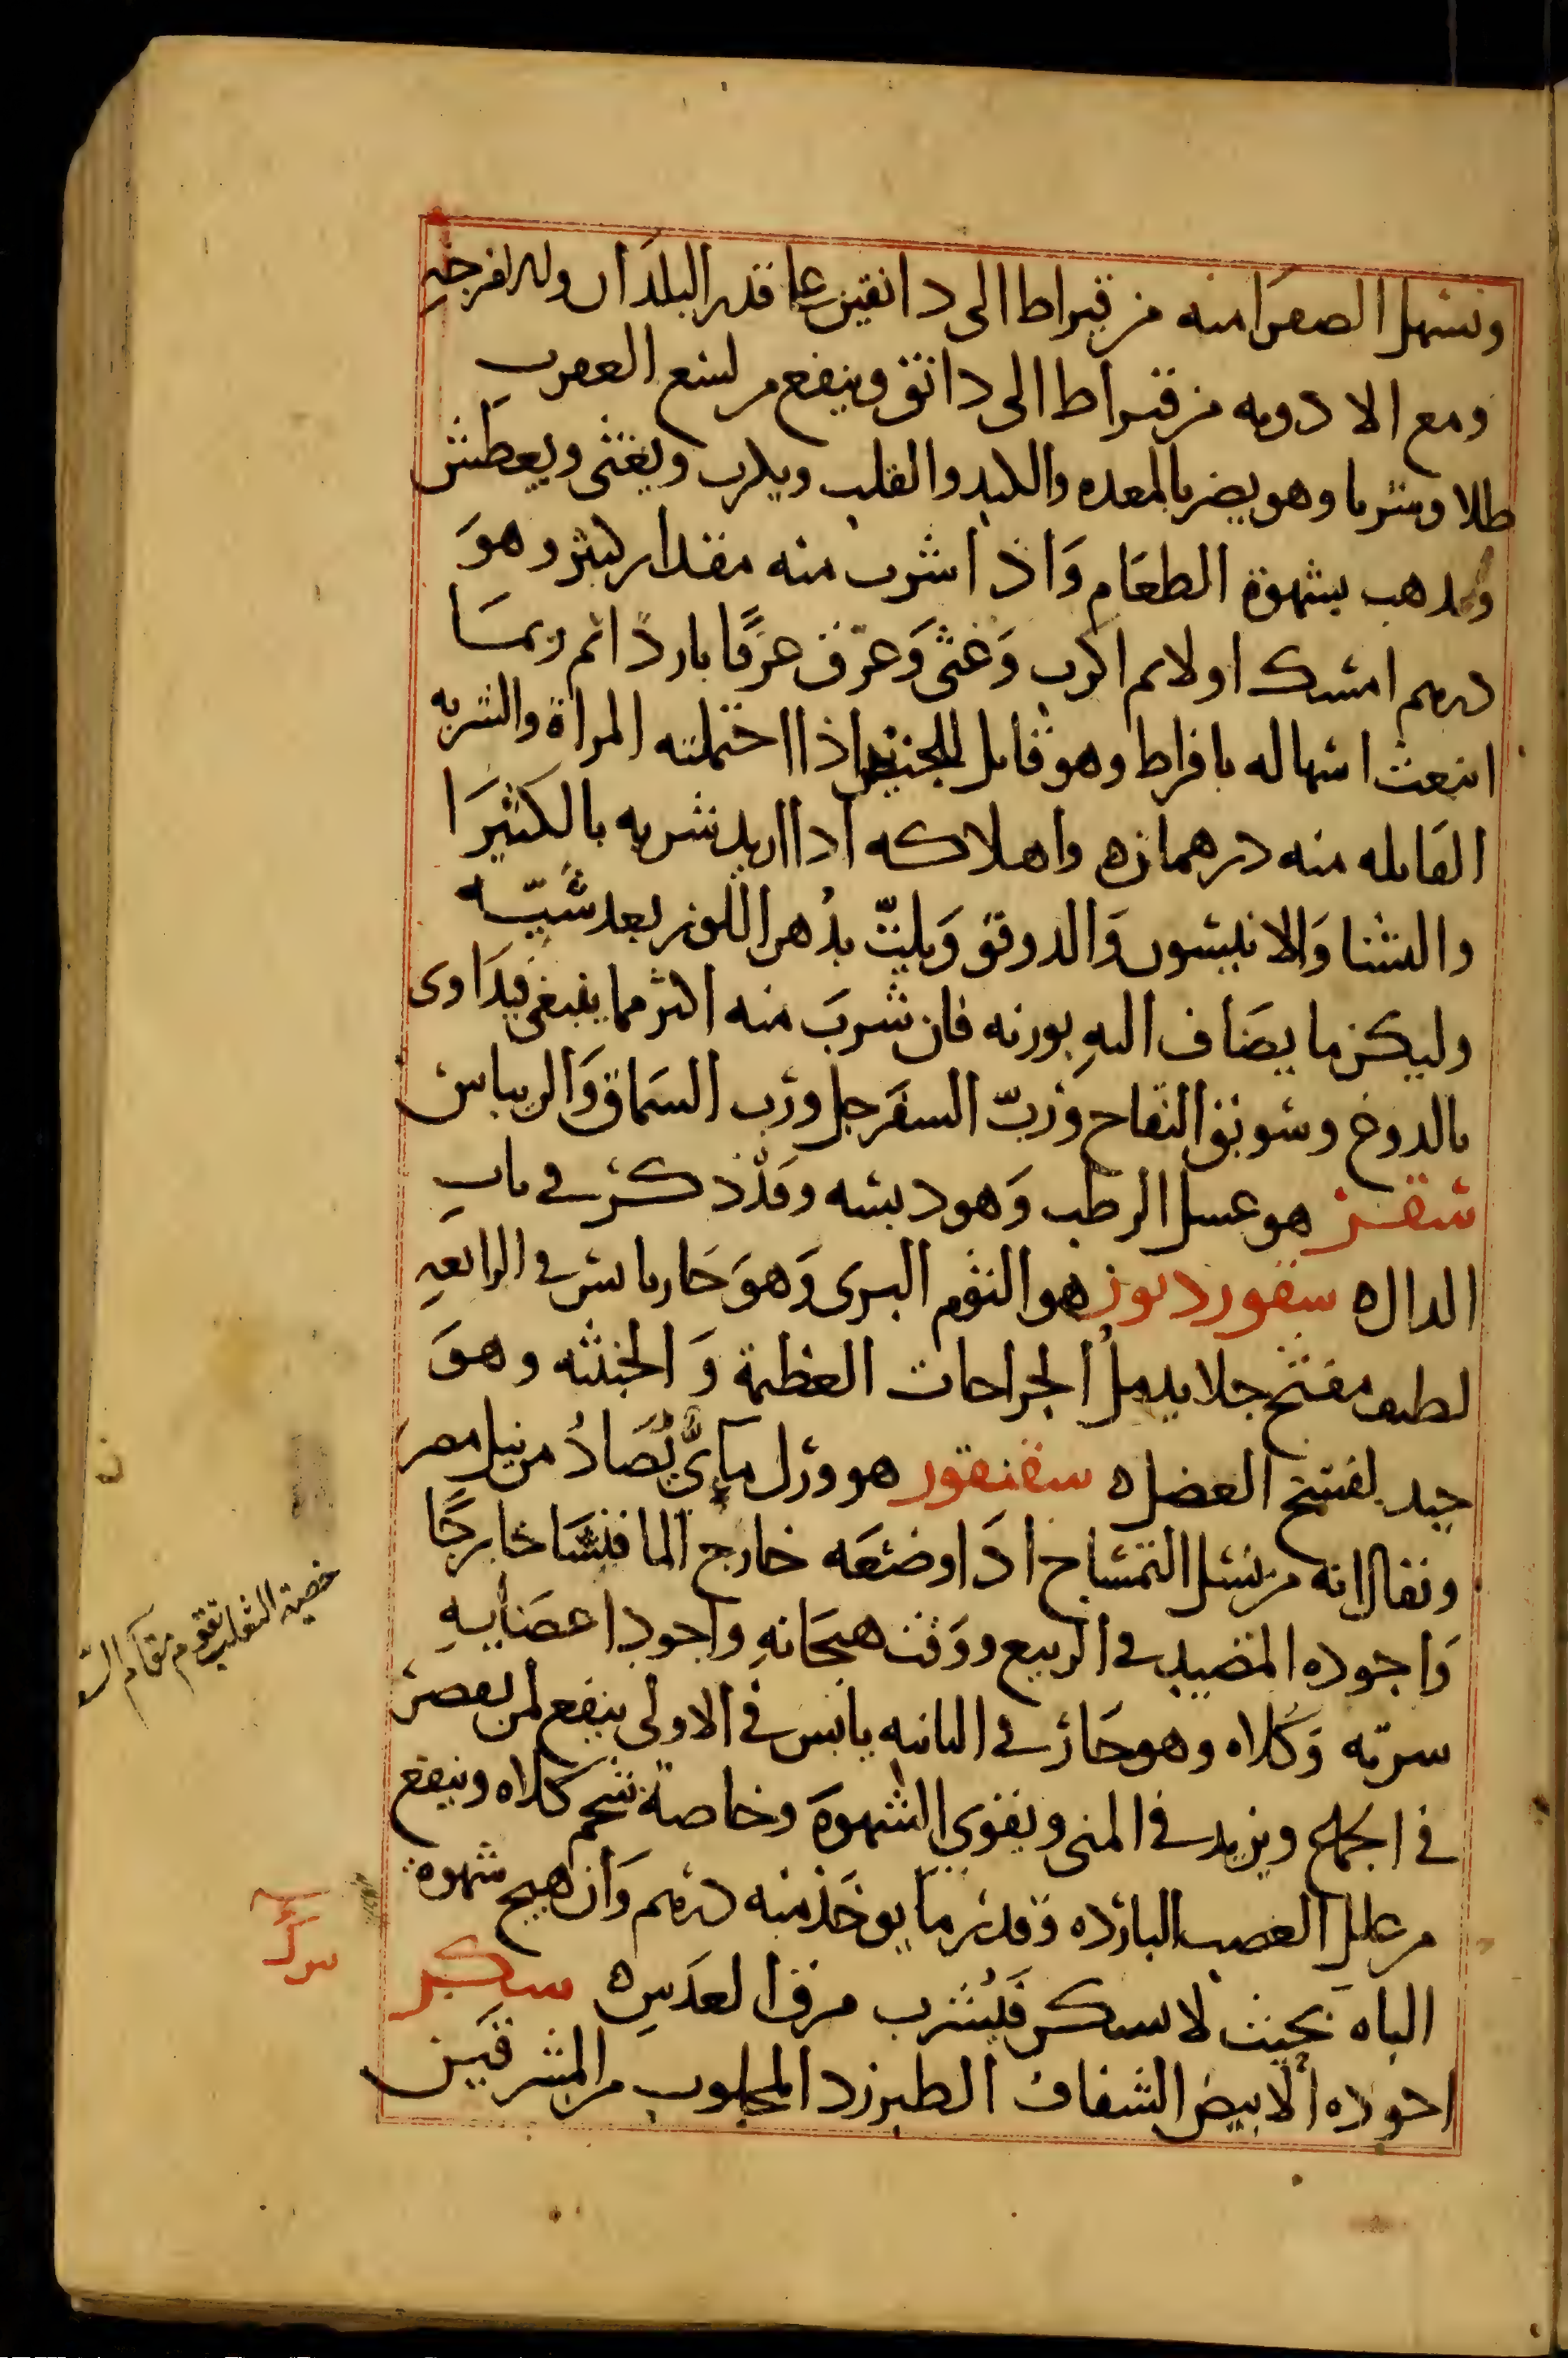 وتسهل الصفرا منه من قيراط الى دانقين على قدر البلدان وله لفرجه
ومع الادويه من قيراط الى دانق وينفع من لسع العقرب
طلا وشربا وهو يضر بالمعده والكبد والقلب ويكرب ويغثى ويعطش
ويذهب بشهوة الطعام وَاذا شرب منه مقدار كثير وهوَ
درهم امسك اولا ثم اكرب وَغثى وَعرّق عرقًا باردًا ثم ربمَا
انبعث اسهاله بافراط وهو قاتل للجنين اذا احتملته المراة والشربه
القاتله منه درهمان ه واهلاكه اذا اريد شربه بالكثيرَا
والنشا وَالانيسون وَالدوقو وَيلتّ بدُهن اللوز بعد شَيّه
وليكن ما يضَاف اليهِ بوزنه فان شربَ منه اكثر مما ينبغى فيدَاوى
بالدوغ وسويق التفاح وَربّ السفَرجل ورُب السمَاق وَالريباس
سقر هو عسل الرطب وَهو دبسه وقد ذكر فى بابِ
الدال ه سقورديون هو الثوم البرى وَهوَ حَار يابس فى الرابعهِ
لطيف مفتح جلا يدملُ الجراحات العظيمة وَالخبيثه وهوَ
جيد لفسخ العضل ه سقنقور هو ورل مَائىّ يُصَادُ من نيل مصر
ويقال انه من نسل التمساح اذَا وضعَه خارج الما فنشَا خارجًا
وَاجوده المصيد فى الربيع ووَقت هيجَانهِ واجود اعضَايهِ
سرته وَكلاه وهو حَار فى الثانيه يابس فى الاولى ينفع لمن يقصر
فى الجماع ويزيد فى المنى ويقوي الشهوَة وخاصةً شحم كلاه وينفع
من علل العصب البارده وَقدر مَا يوخَذ منه درهم وَان هيج شهوة
الباه بحيث لا يسكن فَيُشرب مرق العدَسِ ه سكر
اجوده الابيض الشفاف الطبرزد المجلوب من المشرقَين
خصية الثعلب تقوم مقام